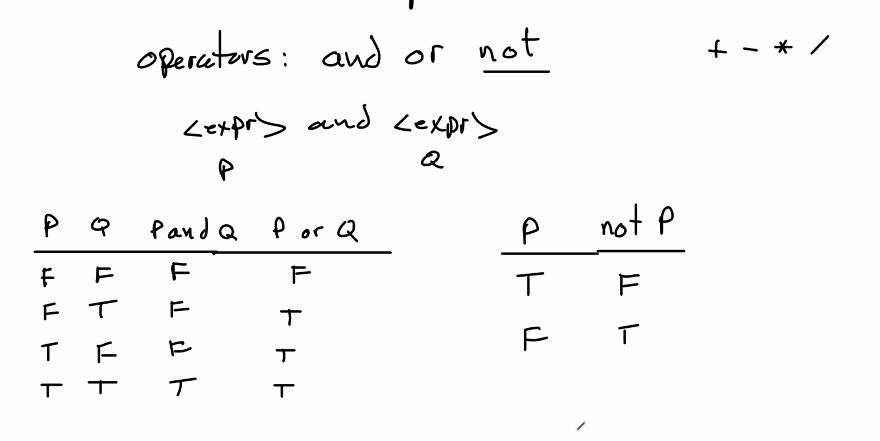 operators: and or not + - * /
<expr> and <expr>
P Q
P Q P and Q P or Q
F F F F
F T F T
T F F T
T T T T
P not P
T F
F T